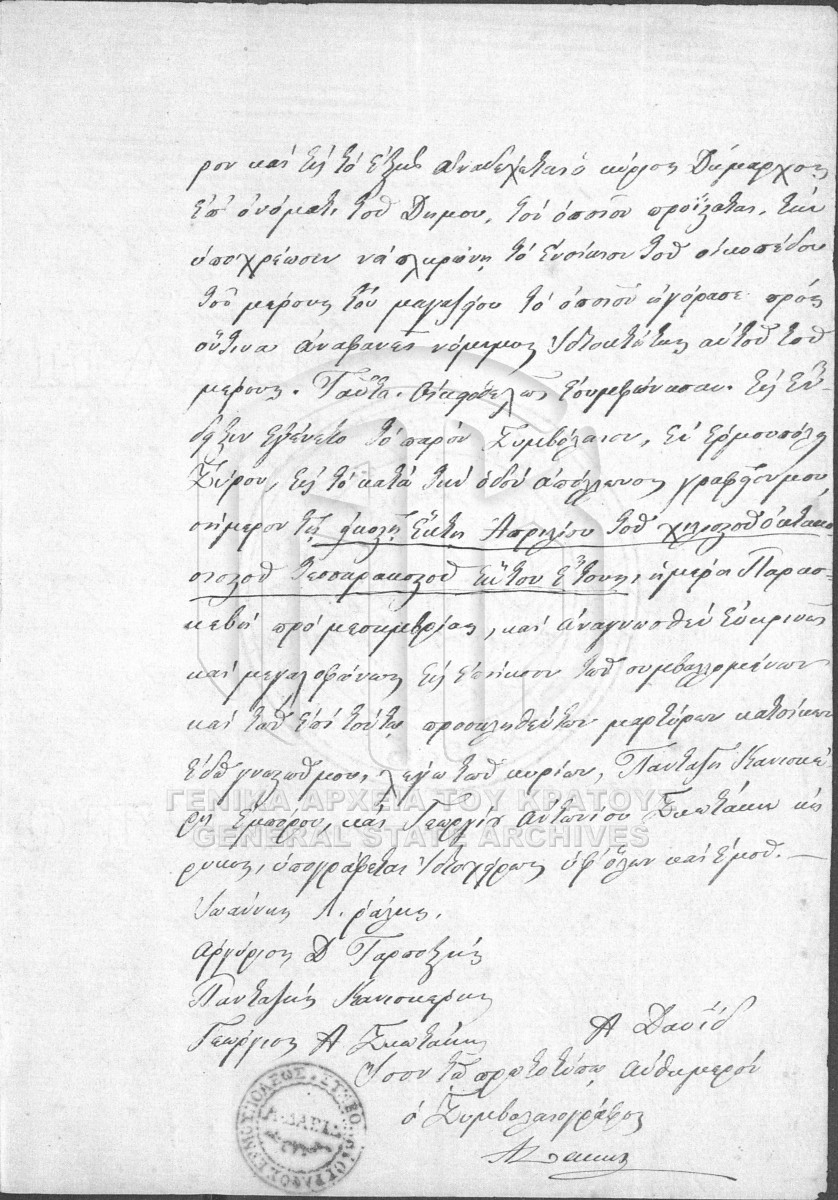 ρον καὶ εἰς τὸ ἑξῆς ἀναδέχεται ὁ κύριος Δήμαρχος
ἐπ' ὀνόματι τοῦ Δήμου, τοῦ ὁποίου προΐσταται, τὴν
ὑποχρέωσιν νὰ πληρώνῃ τὸ ἐνοίκιον τοῦ οἰκοπέδου
τοῦ μέρους τοῦ μαγαζείου τὸ ὁποῖον ἠγόρασε πρὸς
ὅντινα ἀναφανεῖ νόμιμος ἰδιοκτήτης αὐτοῦ τοῦ
μέρους. Ταῦτα ἐσυμφώνησαν. Εἰς ἔν-
δειξιν ἐγένετο τὸ παρὸν Συμβόλαιον, ἐν Ἑρμουπόλει
Σύρου, εἰς τὸ κατὰ τὴν ὁδὸν Ἀπόλλωνος γραφεῖον μου,
σήμερον τῇ εἰκοστῇ ἕκτῃ Ἀπριλίου τοῦ χιλιοστοῦ ὀκτακο-
σιοστοῦ τεσσαρακοστοῦ ἕκτου ἔτους, ἡμέρα Παρασ-
κευῇ πρὸ μεσημβρίας, καὶ ἀναγνωσθὲν εὐκρινῶς
καὶ μεγαλοφώνως εἰς ἐπήκοον τῶν συμβαλλομένων
καὶ τῶν ἐπὶ τούτῳ προσκληθέντων μαρτύρων κατοίκων
ἐδῶ γνωστῶν μου, λέγω τῶν κυρίων, Πανταζῆ Κανισκέ-
ρη ἐμπόρου, καὶ Γεωργίου Ἀντωνίου Σκωτάκη κή-
ρυκος, ὑπογράφεται ἰδιοχείρως ὑφ' ὅλων καὶ ἐμοῦ.—
Ἰωάννης Λ. ράλλης.
Ἀργύριος Δ Ταρποχτσῆς
Πανταζῆς Κανισκέρης
Γεώργιος Α Σκωτάκης
Α Δαυΐδ
Ἴσον τῷ πρωτοτύπῳ αὐθημερόν
ὁ Συμβολαιογράφος
ΓΕΝΙΚΑ ΑΡΧΕΙΑ ΤΟΥ ΚΡΑΤΟΥΣ
GENERAL STATE ARCHIVES